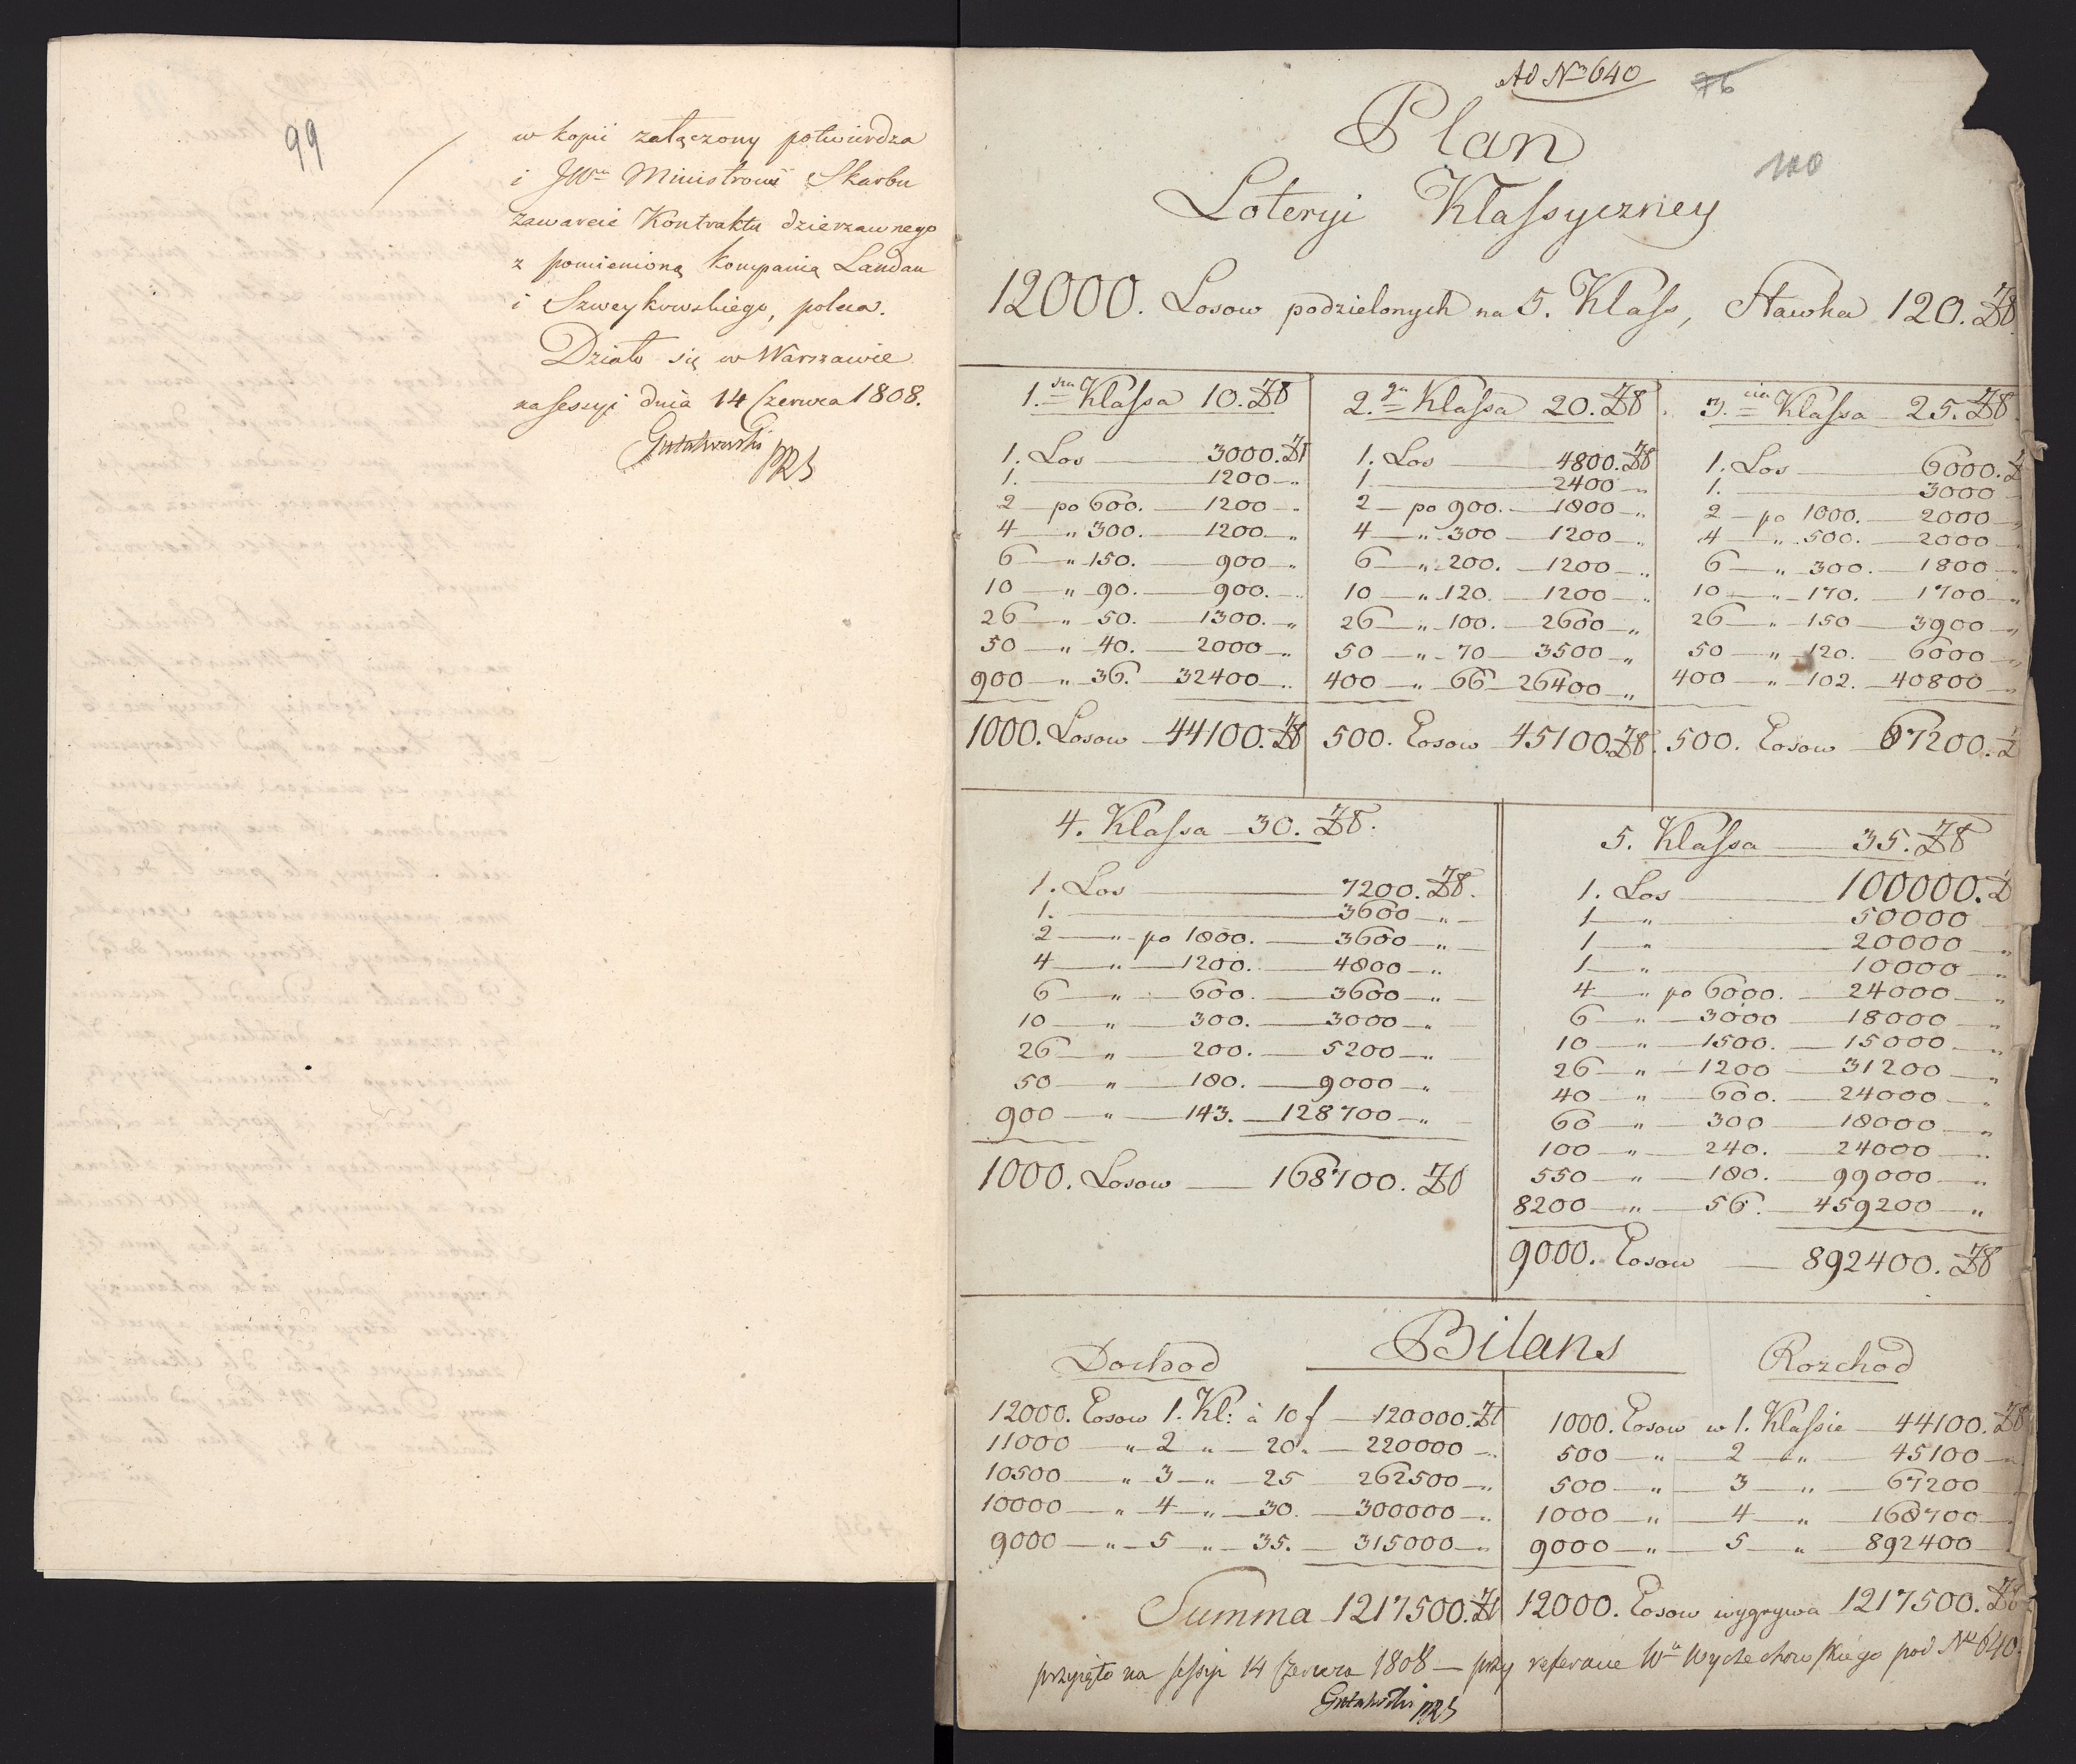 99
w kopii załączony potwierdza
i JWu Ministrowi Skarbu
zawarcie Kontraktu dzierzawnego
z pomienioną kompanią Landau
i Szweykowskiego, poleca.
Działo się w Warszawie
na sessyi dnia 14 Czerwca 1808.
Gutakowski
PRS
Ad No 640
76
100
Plan
Loteryi Klassyczney
12000. Losow podzielonych na 5. Klass, Stawka 120. Zł
1.sza Klassa 10. Zł
1. Los 3000. Zł
1. 1200 "
2 po 600. 1200 "
4 " 300. 1200 "
6 " 150. 900 "
10 " 90. 900. "
26 " 50. 1300. "
50 " 40. 2000 "
900 " 36. 32400 "
1000. Losow 44100. Zł
2.ga Klassa 20. Zł
1. Los 4800. Zł
1. 2400 "
2 po 900. 1800 "
4 " 300 1200 "
6 " 200. 1200 "
10 " 120. 1200 "
26 " 100. 2600 "
50 " 70 3500 "
400 " 66 26400 "
500. Losow 45100 Zł
3.cia Klassa 25. Zł
1. Los 6000. Z
1. 3000
2 po 1000. 2000 "
4 " 500. 2000
6 " 300. 1800 "
10 " 170. 1700 "
26 " 150 3900 "
50 " 120. 6000 "
400 " 102. 40800 "
500. Losow 67200. Z
4. Klassa 30. Zł.
1. Los 7200. Zł.
1. 3600 "
2 " po 1800. 3600 "
4 " 1200. 4800 "
6 " 600. 3600 "
10 " 300. 3000 "
26 " 200. 5200 "
50 " 180. 9000 "
900 " 143. 128700 "
1000. Losow 168700. Zł
5. Klassa 35. Zł
1. Los 100000. Z
1 " 50000
1 " 20000 "
1 " 10000 "
4 " po 6000. 24000 "
6 " 3000 18000 "
10 " 1500. 15000 "
26 " 1200 31200 "
40 " 600. 24000 "
60 " 300 18000 "
100 " 240. 24000 "
550 " 180. 99000 "
8200 " 56. 459200 "
9000. Losow 892400. Zł
Bilans
Dochod
12000. Losow 1. Kl: à 10 f 120000. Zł
11000 " 2 " 20. 220000 "
10500 " 3 " 25 262500 "
10000 " 4 " 30. 300000 "
9000 " 5 " 35. 315000 "
Summa 1217500. Zł
Rozchod
1000. Losow w 1. Klassie 44100. Zł
500 " 2 " 45100 "
500 " 3 " 67200
1000 " 4 " 168700
9000 " 5 " 892400
12000. Losow wygrywa 1217500. Zł
przyięto na sessyi 14 Czerwca 1808 — przy referacie Wa Wyczechowskiego pod No 640.
Gutakowski PRS